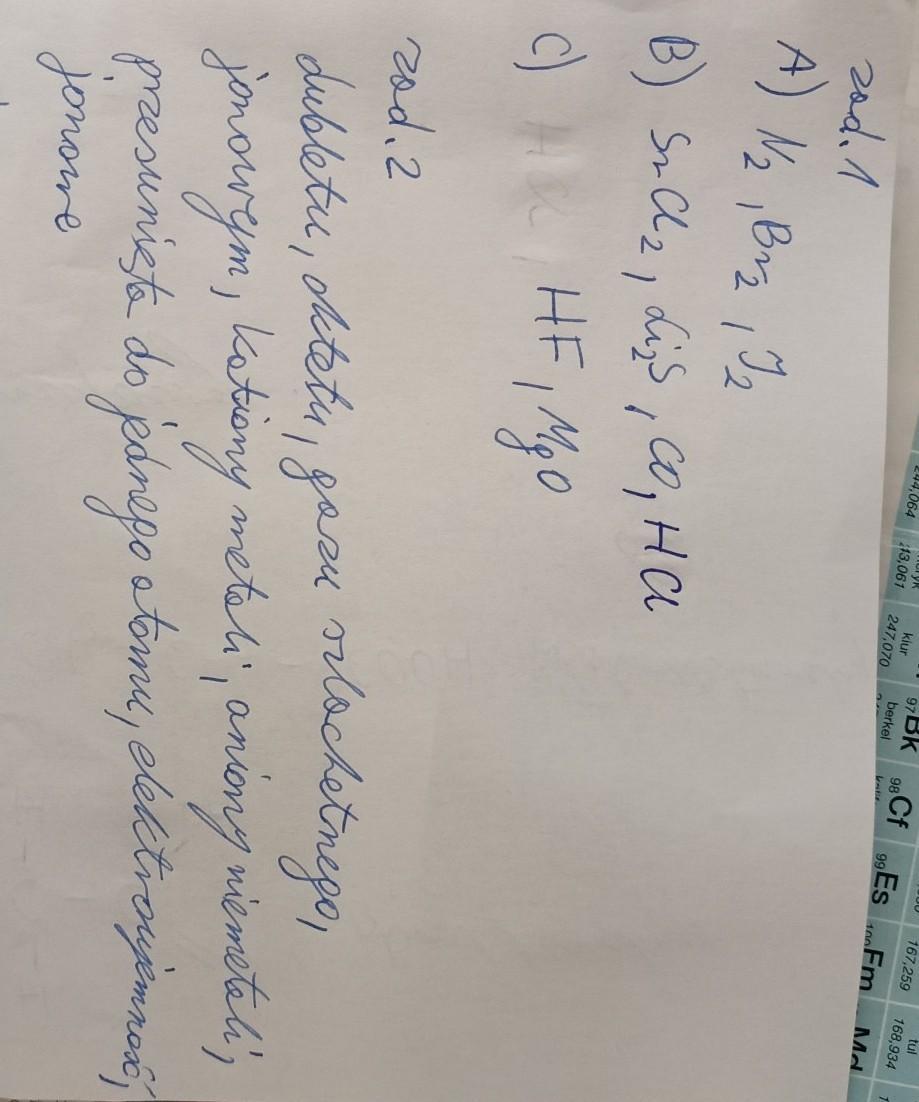 zad. 1
A) N2, Br2, J2
B) SnCl2, Li2S, CO, HCl
C) HCl, HF, MgO
zad. 2
dubletu, oktetu, gazu szlachetnego,
jonowym, kationy metali, aniony niemetali,
przesunięta do jednego atomu, elektroujemność,
jonowe
244,064
13,061
kiur
247,070
97Bk
berkel
98Cf
99Es
167,259
100Fm
tul
168,934
Md